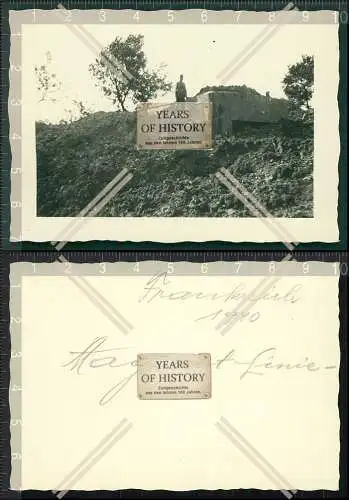 1 2 3 4 5 6 7 8 9 10
YEARS
OF HISTORY
Zeitgeschichte
aus den letzten 100 Jahren
1 2 3 4 5 6 7 8 9 10
Frankreich
1940
YEARS
OF HISTORY
Zeitgeschichte
aus den letzten 100 Jahren
Linie-